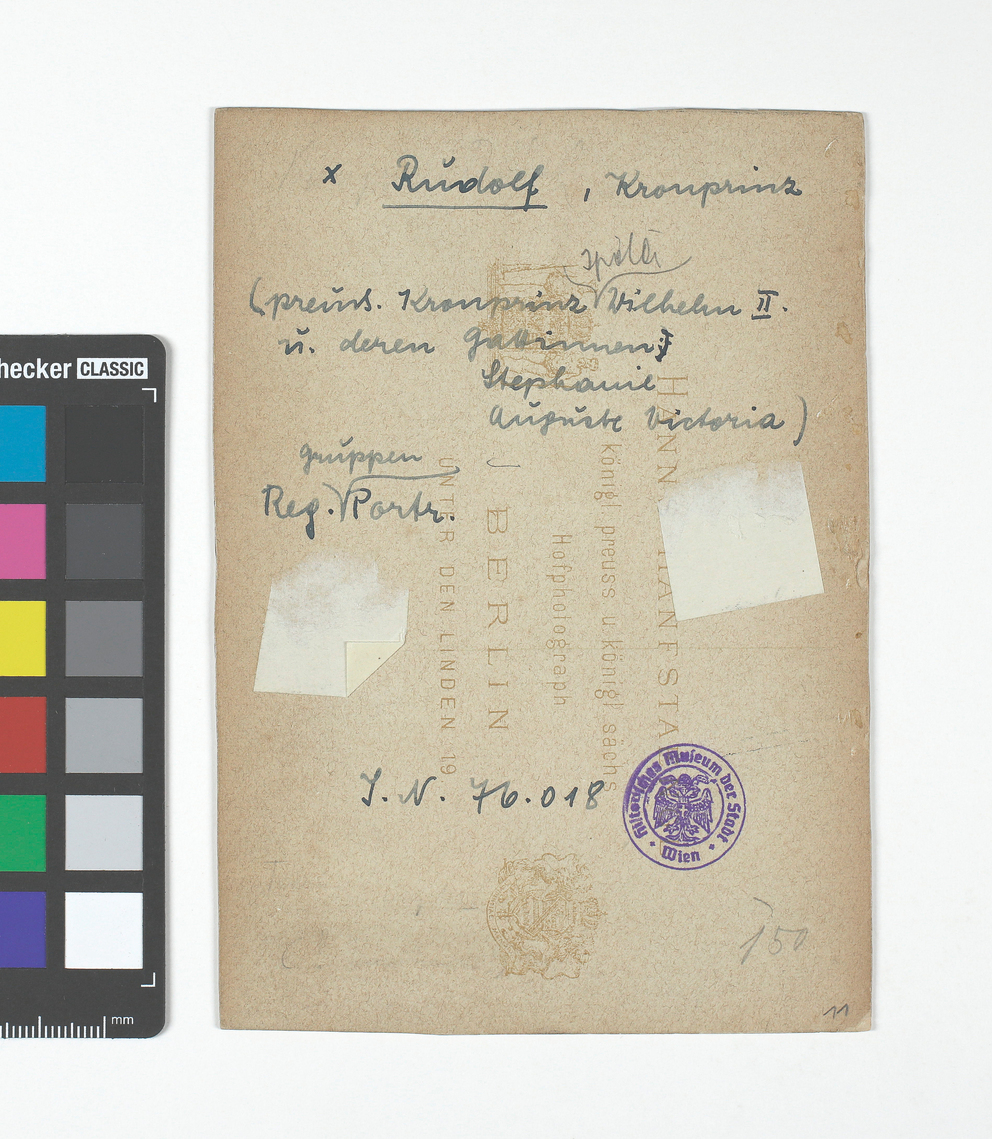 x Rudolf, Kronprinz
später
(preuss. Kronprinz Wilhelm II.
u. deren Gattinnen:
Stephanie
Auguste Victoria)
gruppen
Reg. Portr.
HANNS HANFSTA
königl preuss u königl sächs
Hofphotograph
BERLIN
UNTER DEN LINDEN 19
I. N. 76.018
Historisches Museum der Stadt
• Wien •
150
11
hecker CLASSIC
mm